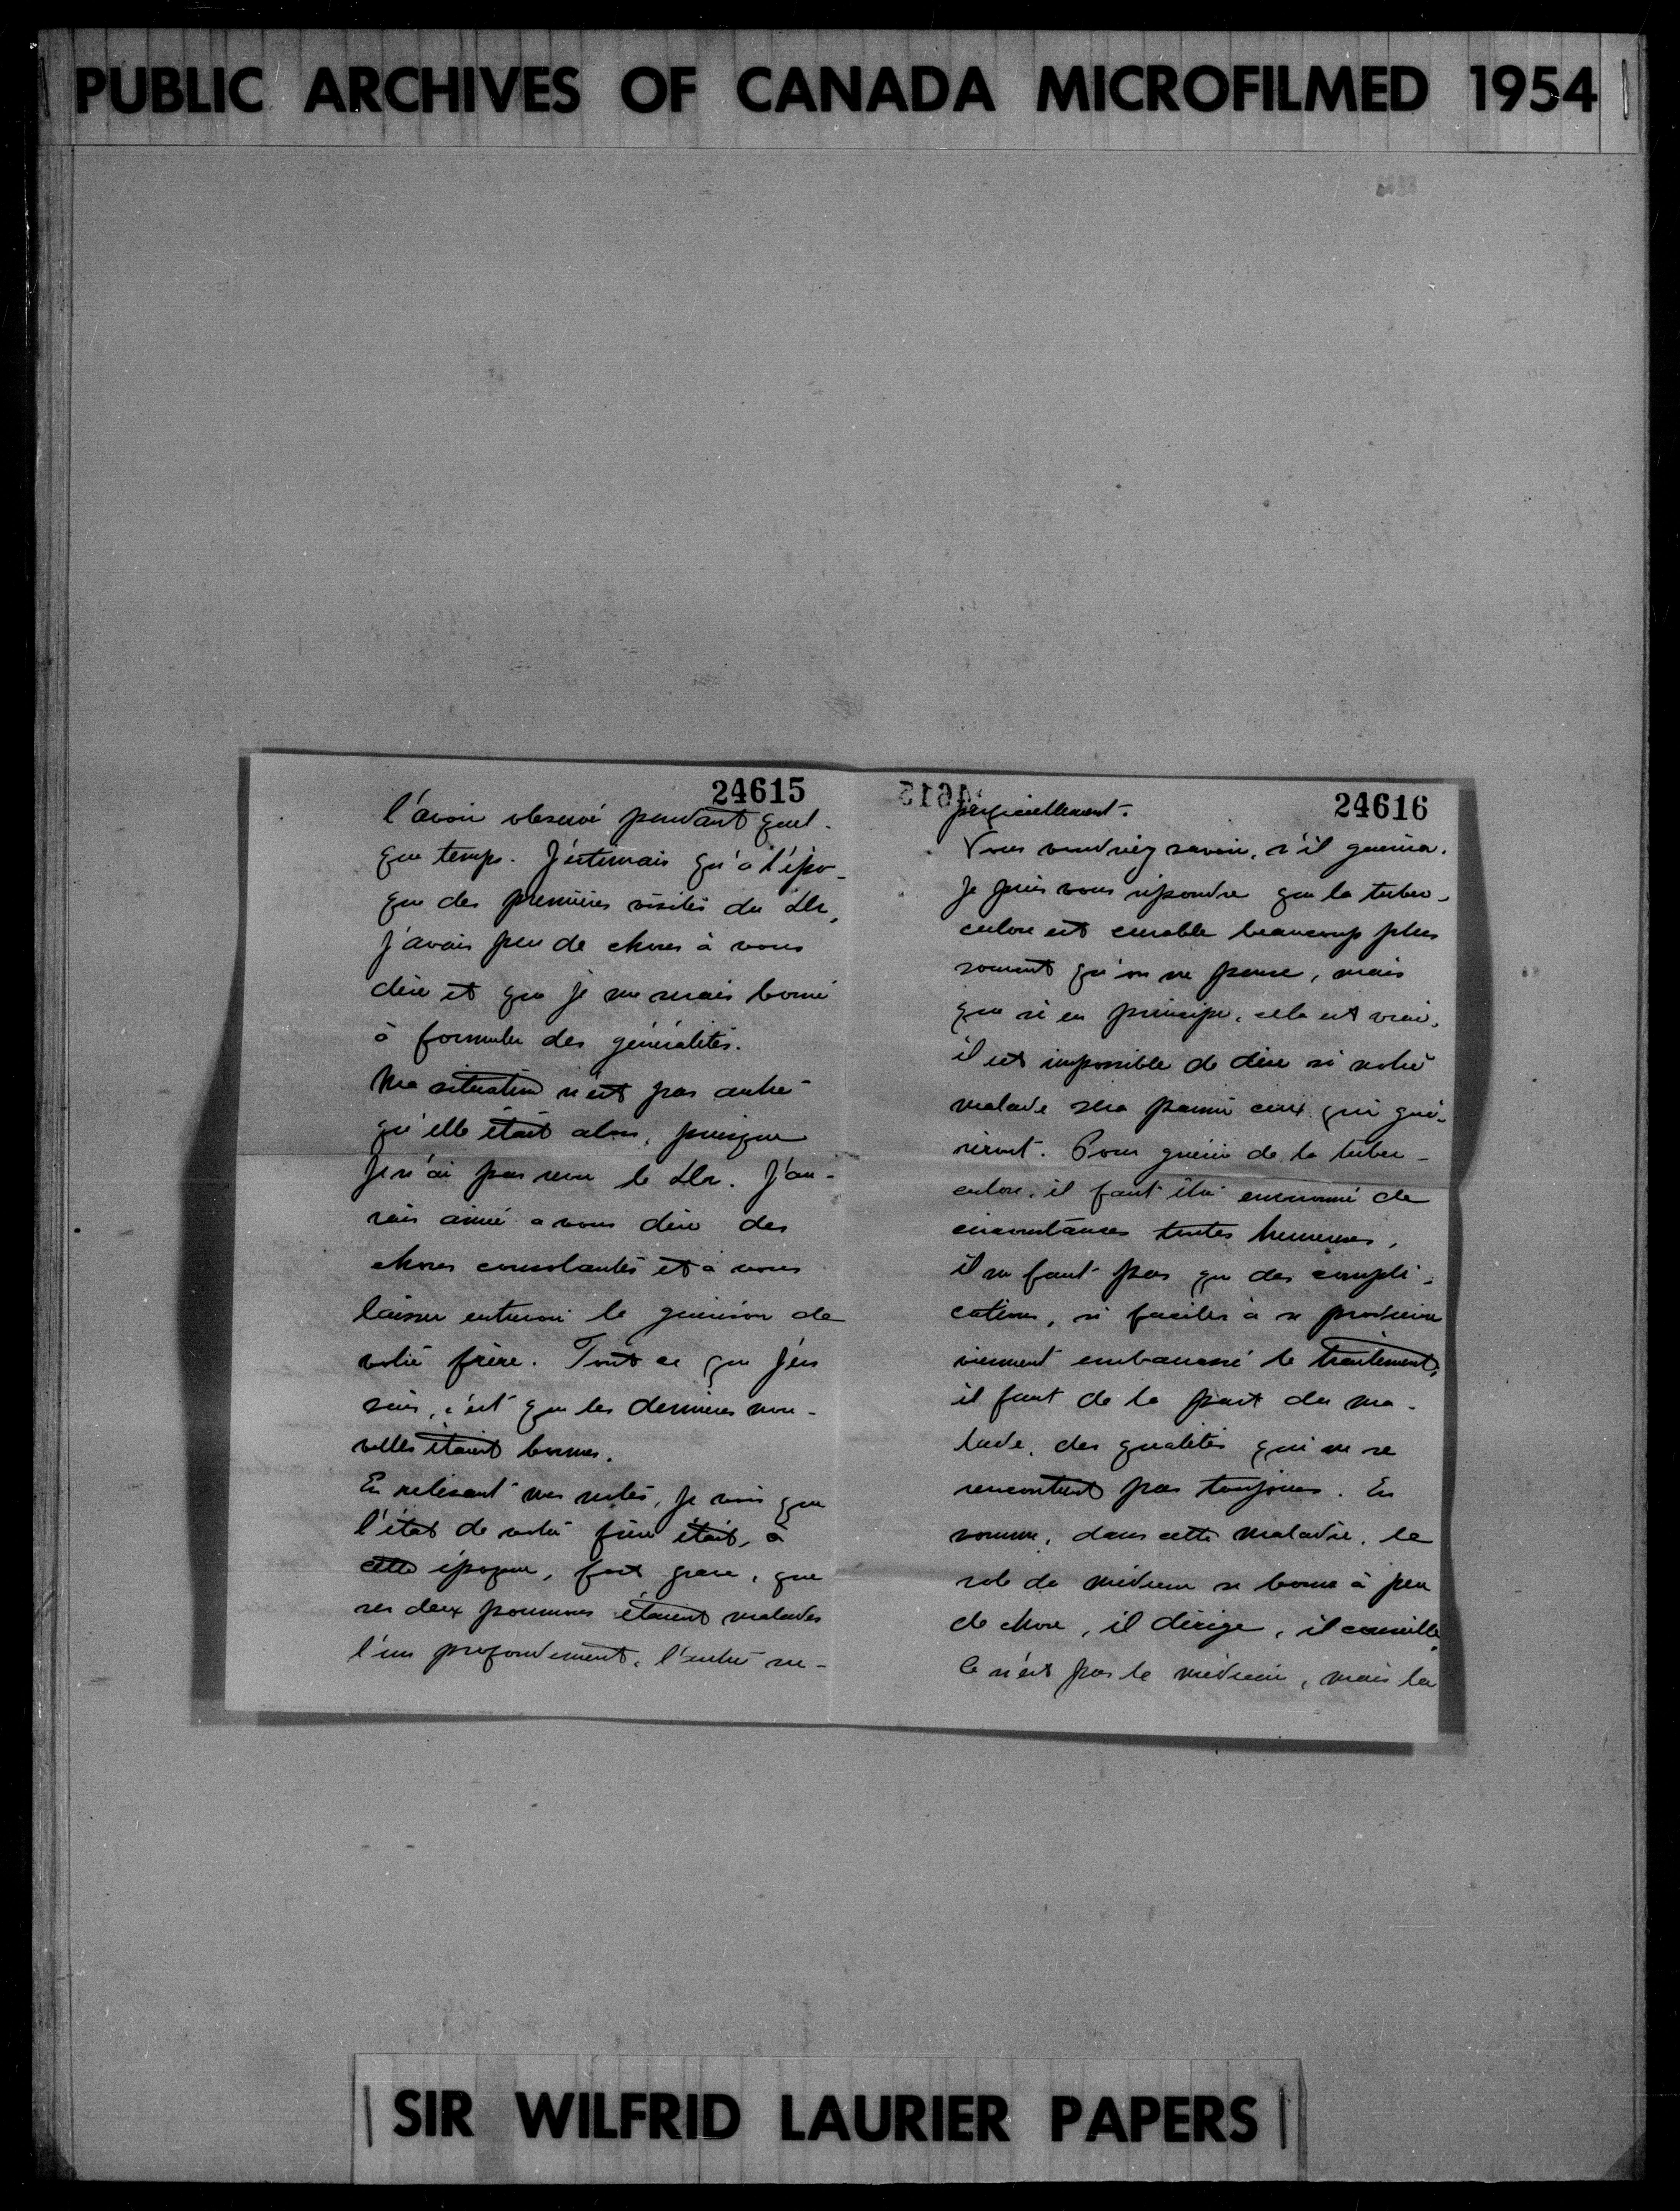 PUBLIC ARCHIVES OF CANADA MICROFILMED 1954
24615
l'avoir observé pendant quel-
que temps. J'estimais qu'à l'épo-
que des premières visites du Dr,
j'avais peu de choses à vous
dire et que je me serais borné
à formuler des généralités.
Ma situation n'est pas autre
qu'elle était alors, puisque
je n'ai pas revu le Dr. J'au-
rais aimé à vous dire des
choses consolantes et à vous
laisser entrevoir la guérison de
votre frère. Tout ce que j'en
sais, c'est que les dernières nou-
velles étaient bonnes.
En relisant mes notes, je vois que
l'état de votre frère était, à
cette époque, fort grave, que
ses deux poumons étaient malades
l'un profondément, l'autre su-
24616
perficiellement.
Vous voudriez savoir, s'il guérira.
Je puis vous répondre que la tuber-
culose est curable beaucoup plus
souvent qu'on ne pense, mais
que si en principe, cela est vrai,
il est impossible de dire si votre
malade sera parmi ceux qui gué-
riront. Pour guérir de la tuber-
culose, il faut être environné de
circonstances toutes heureuses,
il ne faut pas que des compli-
cations, si faciles à se produire
viennent embarrassé le traitement,
il faut de la part du ma-
lade, des qualités qui ne se
rencontrent pas toujours. En
somme, dans cette maladie, le
role du médecin se borne à peu
de chose, il dirige, il conseille,
Ce n'est pas le médecin, mais la
SIR WILFRID LAURIER PAPERS